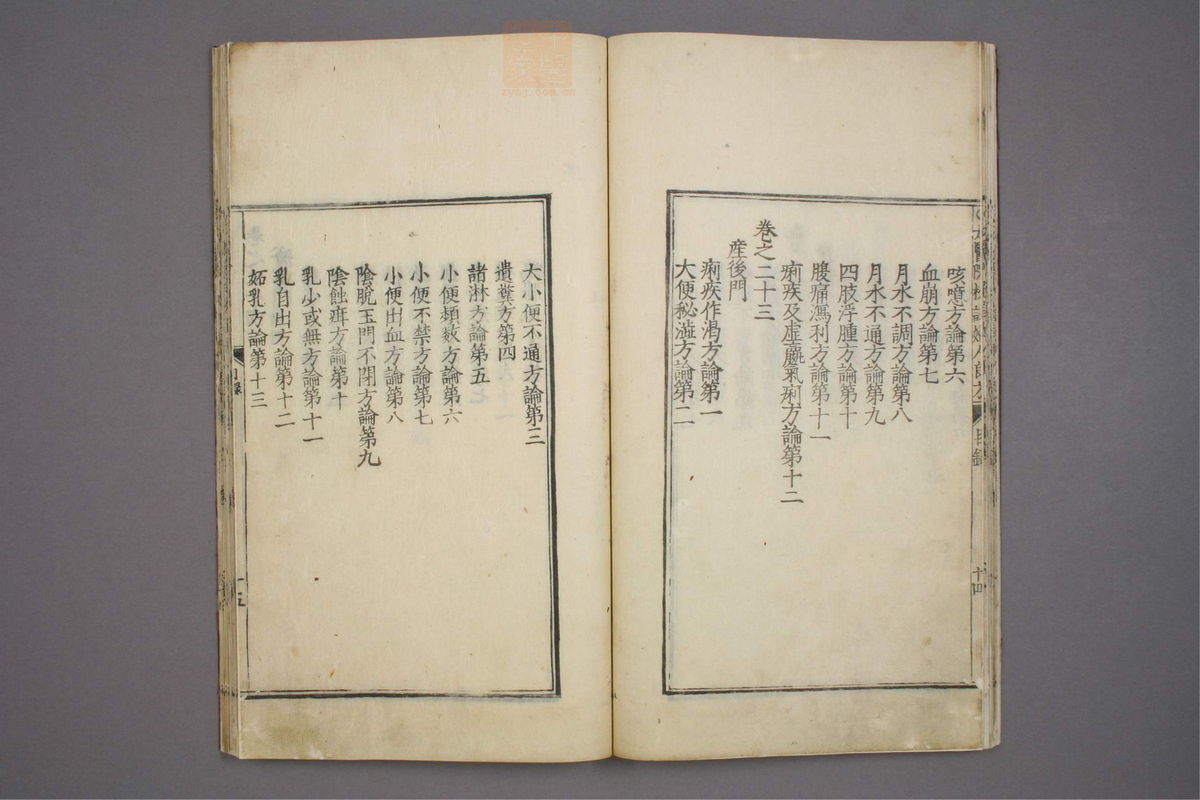 咳噫方論第六
血崩方論第七
月水不調方論第八
月水不通方論第九
四肢浮腫方論第十
腹痛瀉利方論第十一
痢疾及虛羸氣痢方論第十二
卷之二十三
産後門
痢疾作渴方論第一
大便秘澁方論第二
目錄
十四
大小便不通方論第三
遺糞方第四
諸淋方論第五
小便頻數方論第六
小便不禁方論第七
小便出血方論第八
陰脫玉門不閉方論第九
陰蝕痒方論第十
乳少或無方論第十一
乳自出方論第十二
妬乳方論第十三
目錄
十五